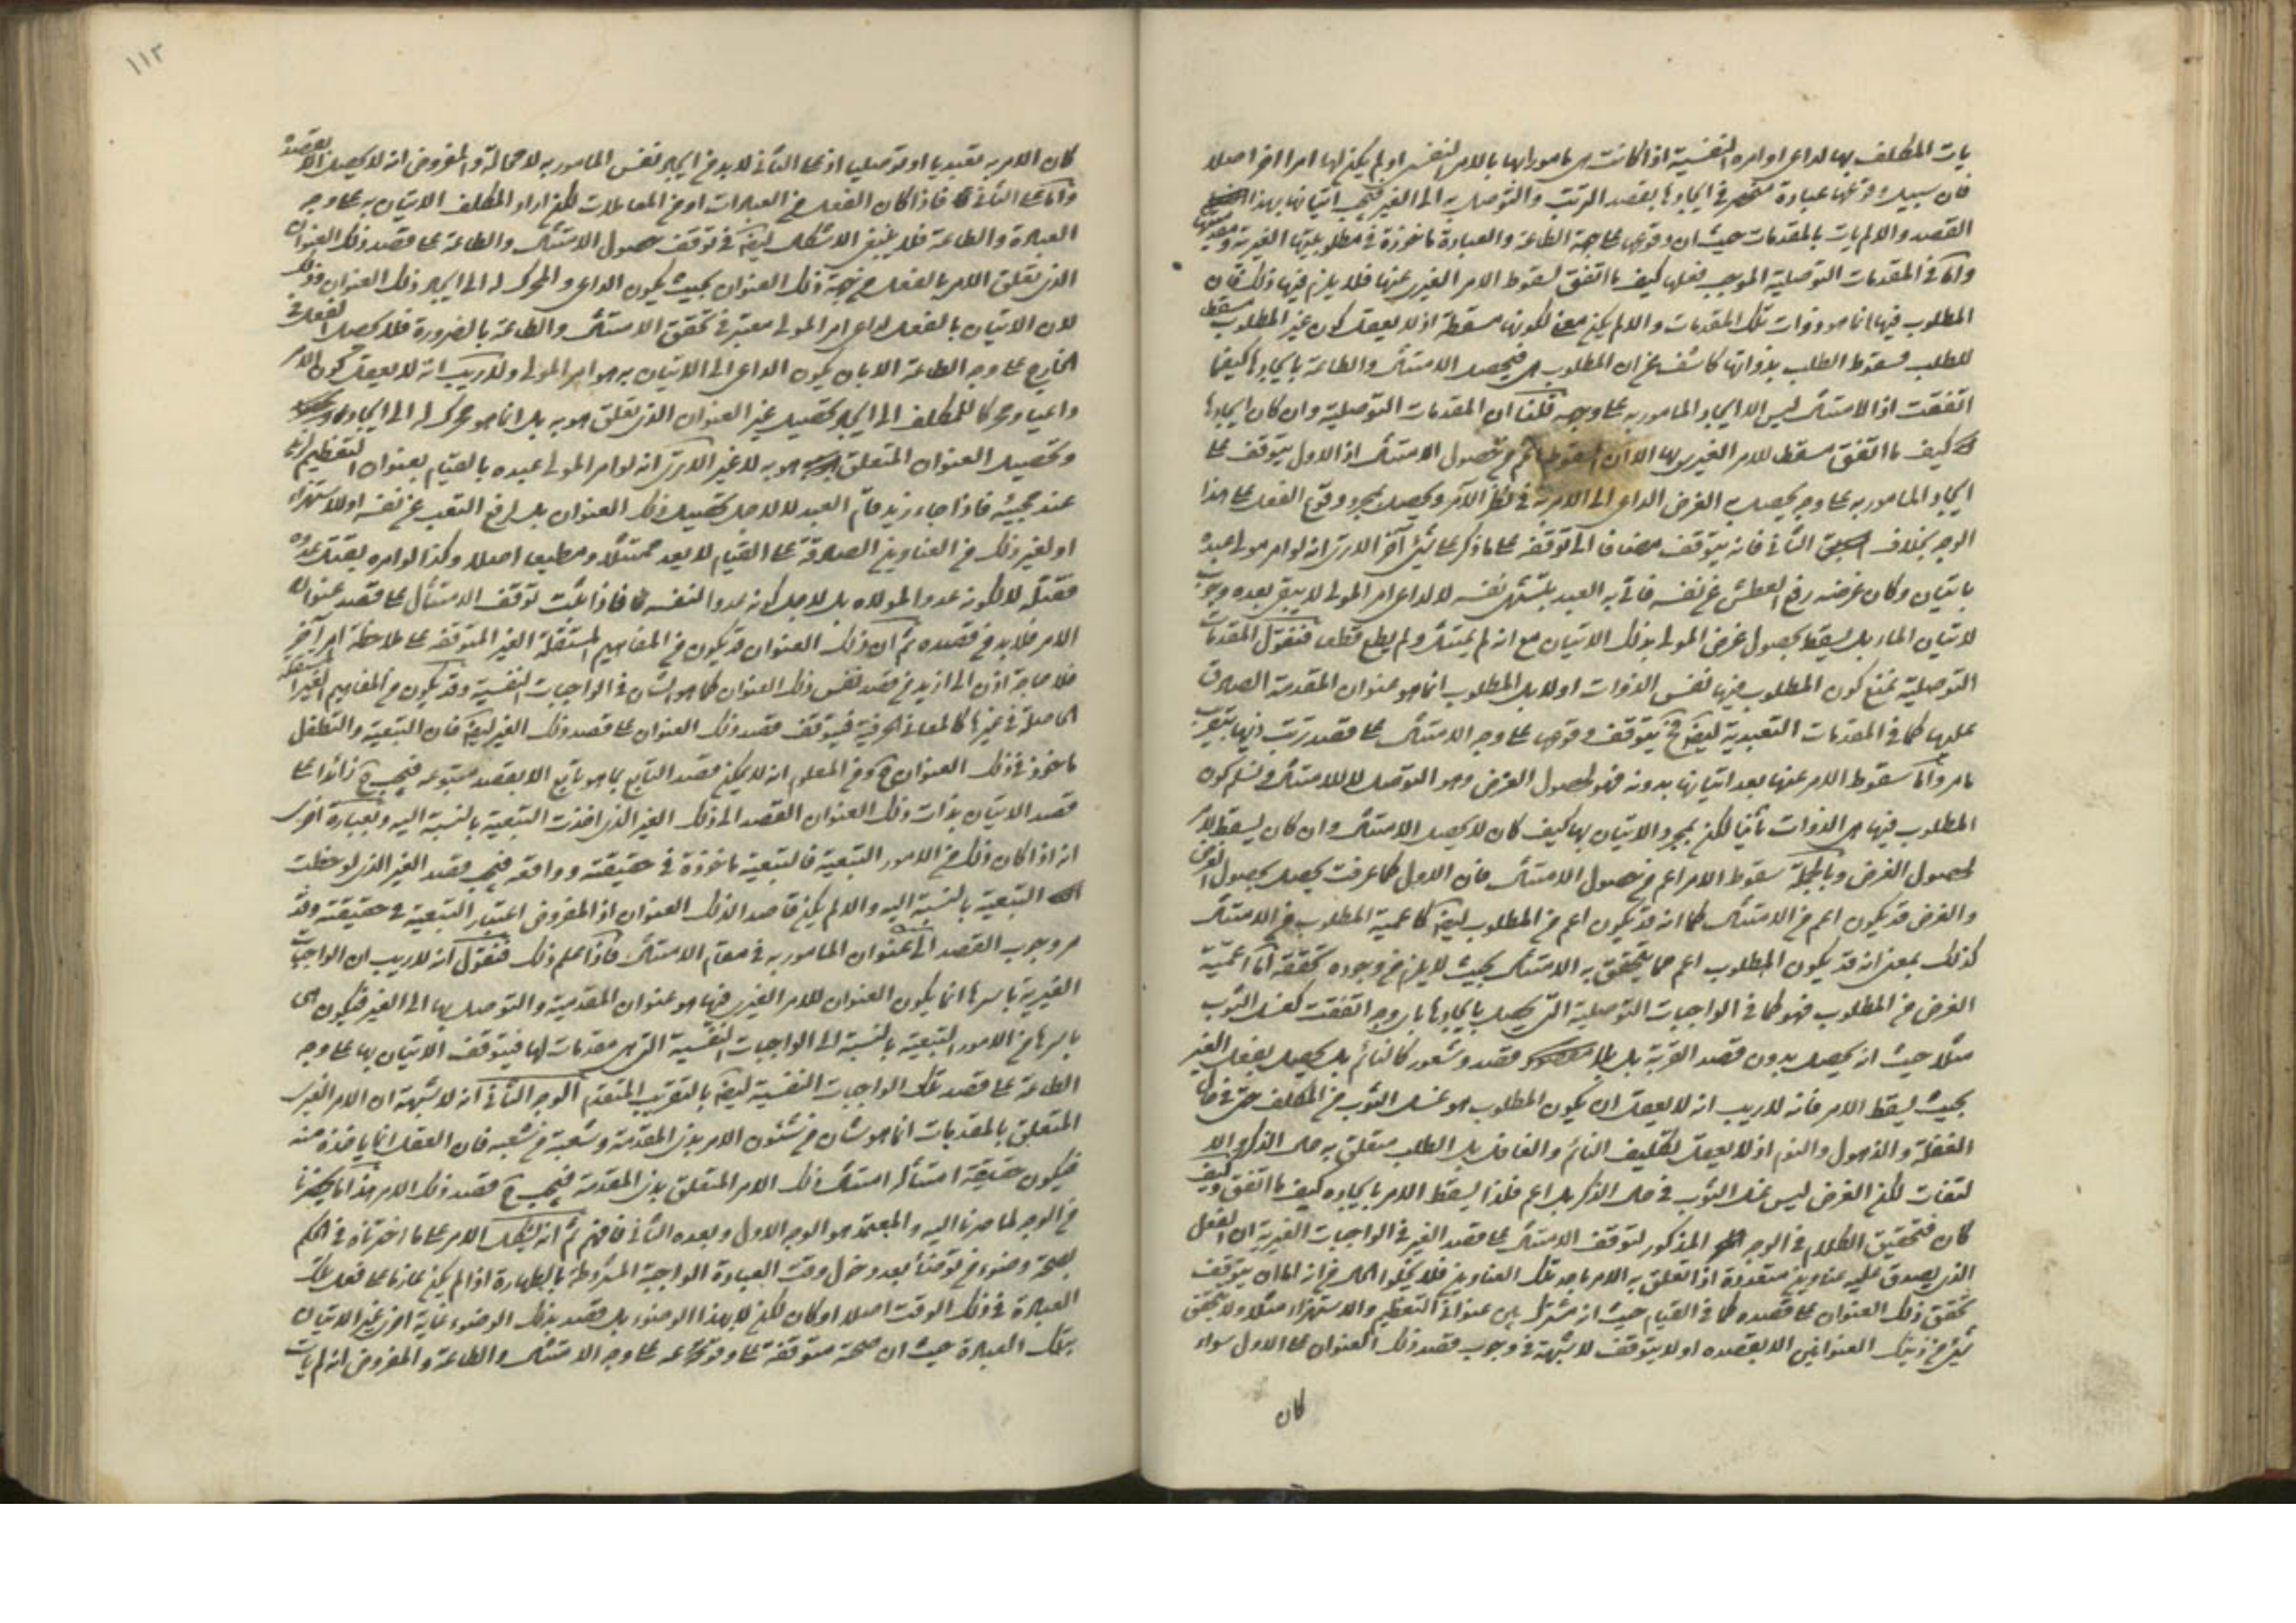 يات المكلف بها لداعى اوامره النفسية اذا كانت هى مامورا بها بالامر النفسى او لم يكن لها امرا اخر اصلا
فان سبيل وقوعها عبادة منحصر فى ايجادها بقصد الترتب والتوصل به الى الغير فيجب اتيانها بهذا
القصد والا لم يات بالمقدمات حيث ان وقوعها على جهة الطاعة والعبادة ماخوذة فى مطلوبيتها الغيرية
واما فى المقدمات التوصلية الموجب فعلها كيف ما اتفق لسقوط الامر الغيرى عنها فلا يلزم فيها ذلك فان
المطلوب فيها انما هو ذوات تلك المقدمات والا لم يكن معنى لكونها مسقطة اذ لا يعقل كون غير المطلوب مسقطا
للطلب فسقوط الطلب بذواتها كاشف عن ان المطلوب هى فيحصل الامتثال والطاعة بايجادها كيفما
اتفقت اذ الامتثال ليس الا ايجاد المامور به على وجهه قلنا ان المقدمات التوصلية وان كان ايجادها
كيف ما اتفق مسقط للامر الغيرى بها الا ان السقوط اعم من حصول الامتثال اذ الاول يتوقف على
ايجاد المامور به على وجه يحصل به الغرض الداعى الى الامر به فى نظر الآمر ويحصل بمجرد وقوع الفعل على هذا
الوجه بخلاف الثانى فانه يتوقف مضافا الى توقفه على ما ذكر على شئ آخر الا ترى انه لو امر مولى عبده
باتيان وكان غرضه رفع العطش عن نفسه فاتى به العبد بتشهى نفسه لا لداعى امر المولى لا يبقى بعده وجوب
لاتيان الماء بل يسقط بحصول غرض المولى بذلك الاتيان مع انه لم يمتثل ولم يطع قطعا فنقول المقدمات
التوصلية نمنع كون المطلوب منها نفس الذوات اولا بل المطلوب انما هو عنوان المقدمة الصادق
عليها كما فى المقدمات التعبدية ايضا فح يتوقف وقوعها على وجه الامتثال على قصد ترتب ذيها بتقريب
ما مر واما سقوط الامر عنها بعد اتيانها بدونه فهو لحصول الغرض وهو التوصل لا للامتثال ونسلم كون
المطلوب فيها هى الذوات ثانيا لكن بمجرد الاتيان بها كيف كان لا يحصل الامتثال وان كان يسقط الامر
لحصول الغرض وبالجملة سقوط الامر اعم من حصول الامتثال فان الاول كما عرفت يحصل بحصول الغرض
والغرض قد يكون اعم من الامتثال كما انه قد يكون اعم من المطلوب ايضا كاعمية المطلوب من الامتثال
كذلك بمعنى انه قد يكون المطلوب اعم مما يتحقق به الامتثال بحيث لا يلزم من وجوده تحققه اما اعمية
الغرض من المطلوب فهو كما فى الواجبات التوصلية التى يحصل بايجادها باى وجه اتفقت كغسل الثوب
مثلا حيث انه يحصل بدون قصد القربة بل بلا قصد وشعور كالنائم بل يحصل بفعل الغير
بحيث يسقط الامر فانه لا ريب انه لا يعقل ان يكون المطلوب هو غسل الثوب من المكلف حتى فى حال
الغفلة والذهول والنوم اذ لا يعقل تكليف النائم والغافل بل الطلب متعلق به حال الذكر والا
لتفات لكن الغرض ليس غسل الثوب فى حال الذكر بل اعم فلذا يسقط الامر بايجاده كيف ما اتفق وكيف
كان فتحقيق الكلام فى الوجه المذكور لتوقف الامتثال على قصد الغير فى الواجبات الغيرية ان الفعل
الذى يصدق عليه عناوين متعددة اذا تعلق به الامر باحد تلك العناوين فلا يخلوا الحال من انه اما ان يتوقف
تحقق ذلك العنوان على قصده كما فى القيام حيث انه مشترك بين عنوانى التعظيم والاستهزاء مثلا ولا يتحقق
شئ من ذينك العنوانين الا بقصده او لا يتوقف لا شبهة فى وجوب قصد ذلك العنوان على الاول سواء
كان
١١٣
كان الامر به تعبديا او توصليا اذ على الثانى لا بد من ايجاد نفس المامور به لا محالة والمفروض انه لا يحصل الا بقصده
واما على الثانى فاذا كان الفعل من العبادات او من المعاملات لكن اراد المكلف الاتيان به على وجه
العبادة والطاعة فلا ينبغى الاشكال ايضا فى توقف حصول الامتثال والطاعة على قصد ذلك العنوان
الذى تعلق الامر بالفعل من جهة ذلك العنوان بحيث يكون الداعى والمحرك له الى ايجاد ذلك العنوان وذلك
لان الاتيان بالفعل لداعى امر المولى معتبر فى تحقق الامتثال والطاعة بالضرورة فلا يحصل الفعل فى
الخارج على وجه الطاعة الا بان يكون الداعى الى الاتيان به هو امر المولى ولا ريب انه لا يعقل كون الامر
داعيا ومحركا للمكلف الى ايجاد وتحصيل غير العنوان الذى تعلق هو به بل انما هو محرك له الى ايجاده
وتحصيل العنوان المتعلق هو به لا غير الا ترى انه لو امر المولى عبده بالقيام بعنوان التعظيم لزيد
عند مجيئه فاذا جاء زيد قام العبد لا لاجل تحصيل ذلك العنوان بل لرفع التعب عن نفسه او للاستهزاء
او لغير ذلك من العناوين الصادقة على القيام لا يعد ممتثلا ومطيعا اصلا وكذا لو امره بقتل عدوه
فقتله لا لكونه عدوا لمولاه بل لاجل كونه عدوا لنفسه فاذا ثبت توقف الامتثال على قصد عنوان
الامر فلا بد من قصده ثم ان ذلك العنوان قد يكون من المفاهيم المستقلة الغير المتوقفة على ملاحظة امر آخر
فلا حاجة اذن الى ازيد من قصد نفس ذلك العنوان كما هو الشان فى الواجبات النفسية وقد يكون من المفاهيم الغير المستقلة
الحاصلة فى غيرها كالمعانى الحرفية فيتوقف قصد ذلك العنوان على قصد ذلك الغير ايضا فان التبعية والتطفل
ماخوذ فى ذلك العنوان ح ومن المعلوم انه لا يمكن قصد التابع بما هو تابع الا بقصد متبوعه فيجب ح زائدا على
قصد الاتيان بذات ذلك العنوان القصد الى ذلك الغير الذى اخذت التبعية بالنسبة اليه وبعبارة اخرى
انه اذا كان ذلك من الامور التبعية فالتبعية ماخوذة فى حقيقته وواقعه فيجب قصد الغير الذى لوحظت
التبعية بالنسبة اليه والا لم يكن قاصدا لذلك العنوان اذ المفروض اعتبار التبعية فى حقيقته وقد
مر وجوب القصد الى عنوان المامور به فى مقام الامتثال فاذا علم ذلك فنقول انه لا ريب ان الواجبات
الغيرية باسرها انما يكون العنوان للامر الغيرى فيها هو عنوان المقدمية والتوصل بها الى الغير فيكون هى
باسرها من الامور التبعية بالنسبة الى الواجبات النفسية التى هى مقدمات لها فيتوقف الاتيان بها على وجه
الطاعة على قصد تلك الواجبات النفسية ايضا بالتقريب المتقدم الوجه الثانى انه لا شبهة ان الامر الغيرى
المتعلق بالمقدمات انما هو شان من شئون الامر بذى المقدمة وشعبة من شعبه فان العقل انما ياخذه منه
فيكون حقيقة امتثاله امتثال ذلك الامر المتعلق بذى المقدمة فيجب ح قصد ذلك الامر هذا ما يحضرنا
من الوجه لما صرنا اليه والمعتمد هو الوجه الاول وبعده الثانى فافهم ثم انه يشكل الامر على ما اخترناه فى الحكم
بصحة وضوء من توضأ بعد دخول وقت العبادة الواجبة المشروطة بالطهارة اذا لم يكن عازما على فعل تلك
العبادة فى ذلك الوقت اصلا او كان لكن لا بهذا الوضوء بل قصد بذلك الوضوء غاية اخرى غير الاتيان
بتلك العبادة حيث ان صحته متوقفة على وقوعه على وجه الامتثال والطاعة والمفروض انه لم يات